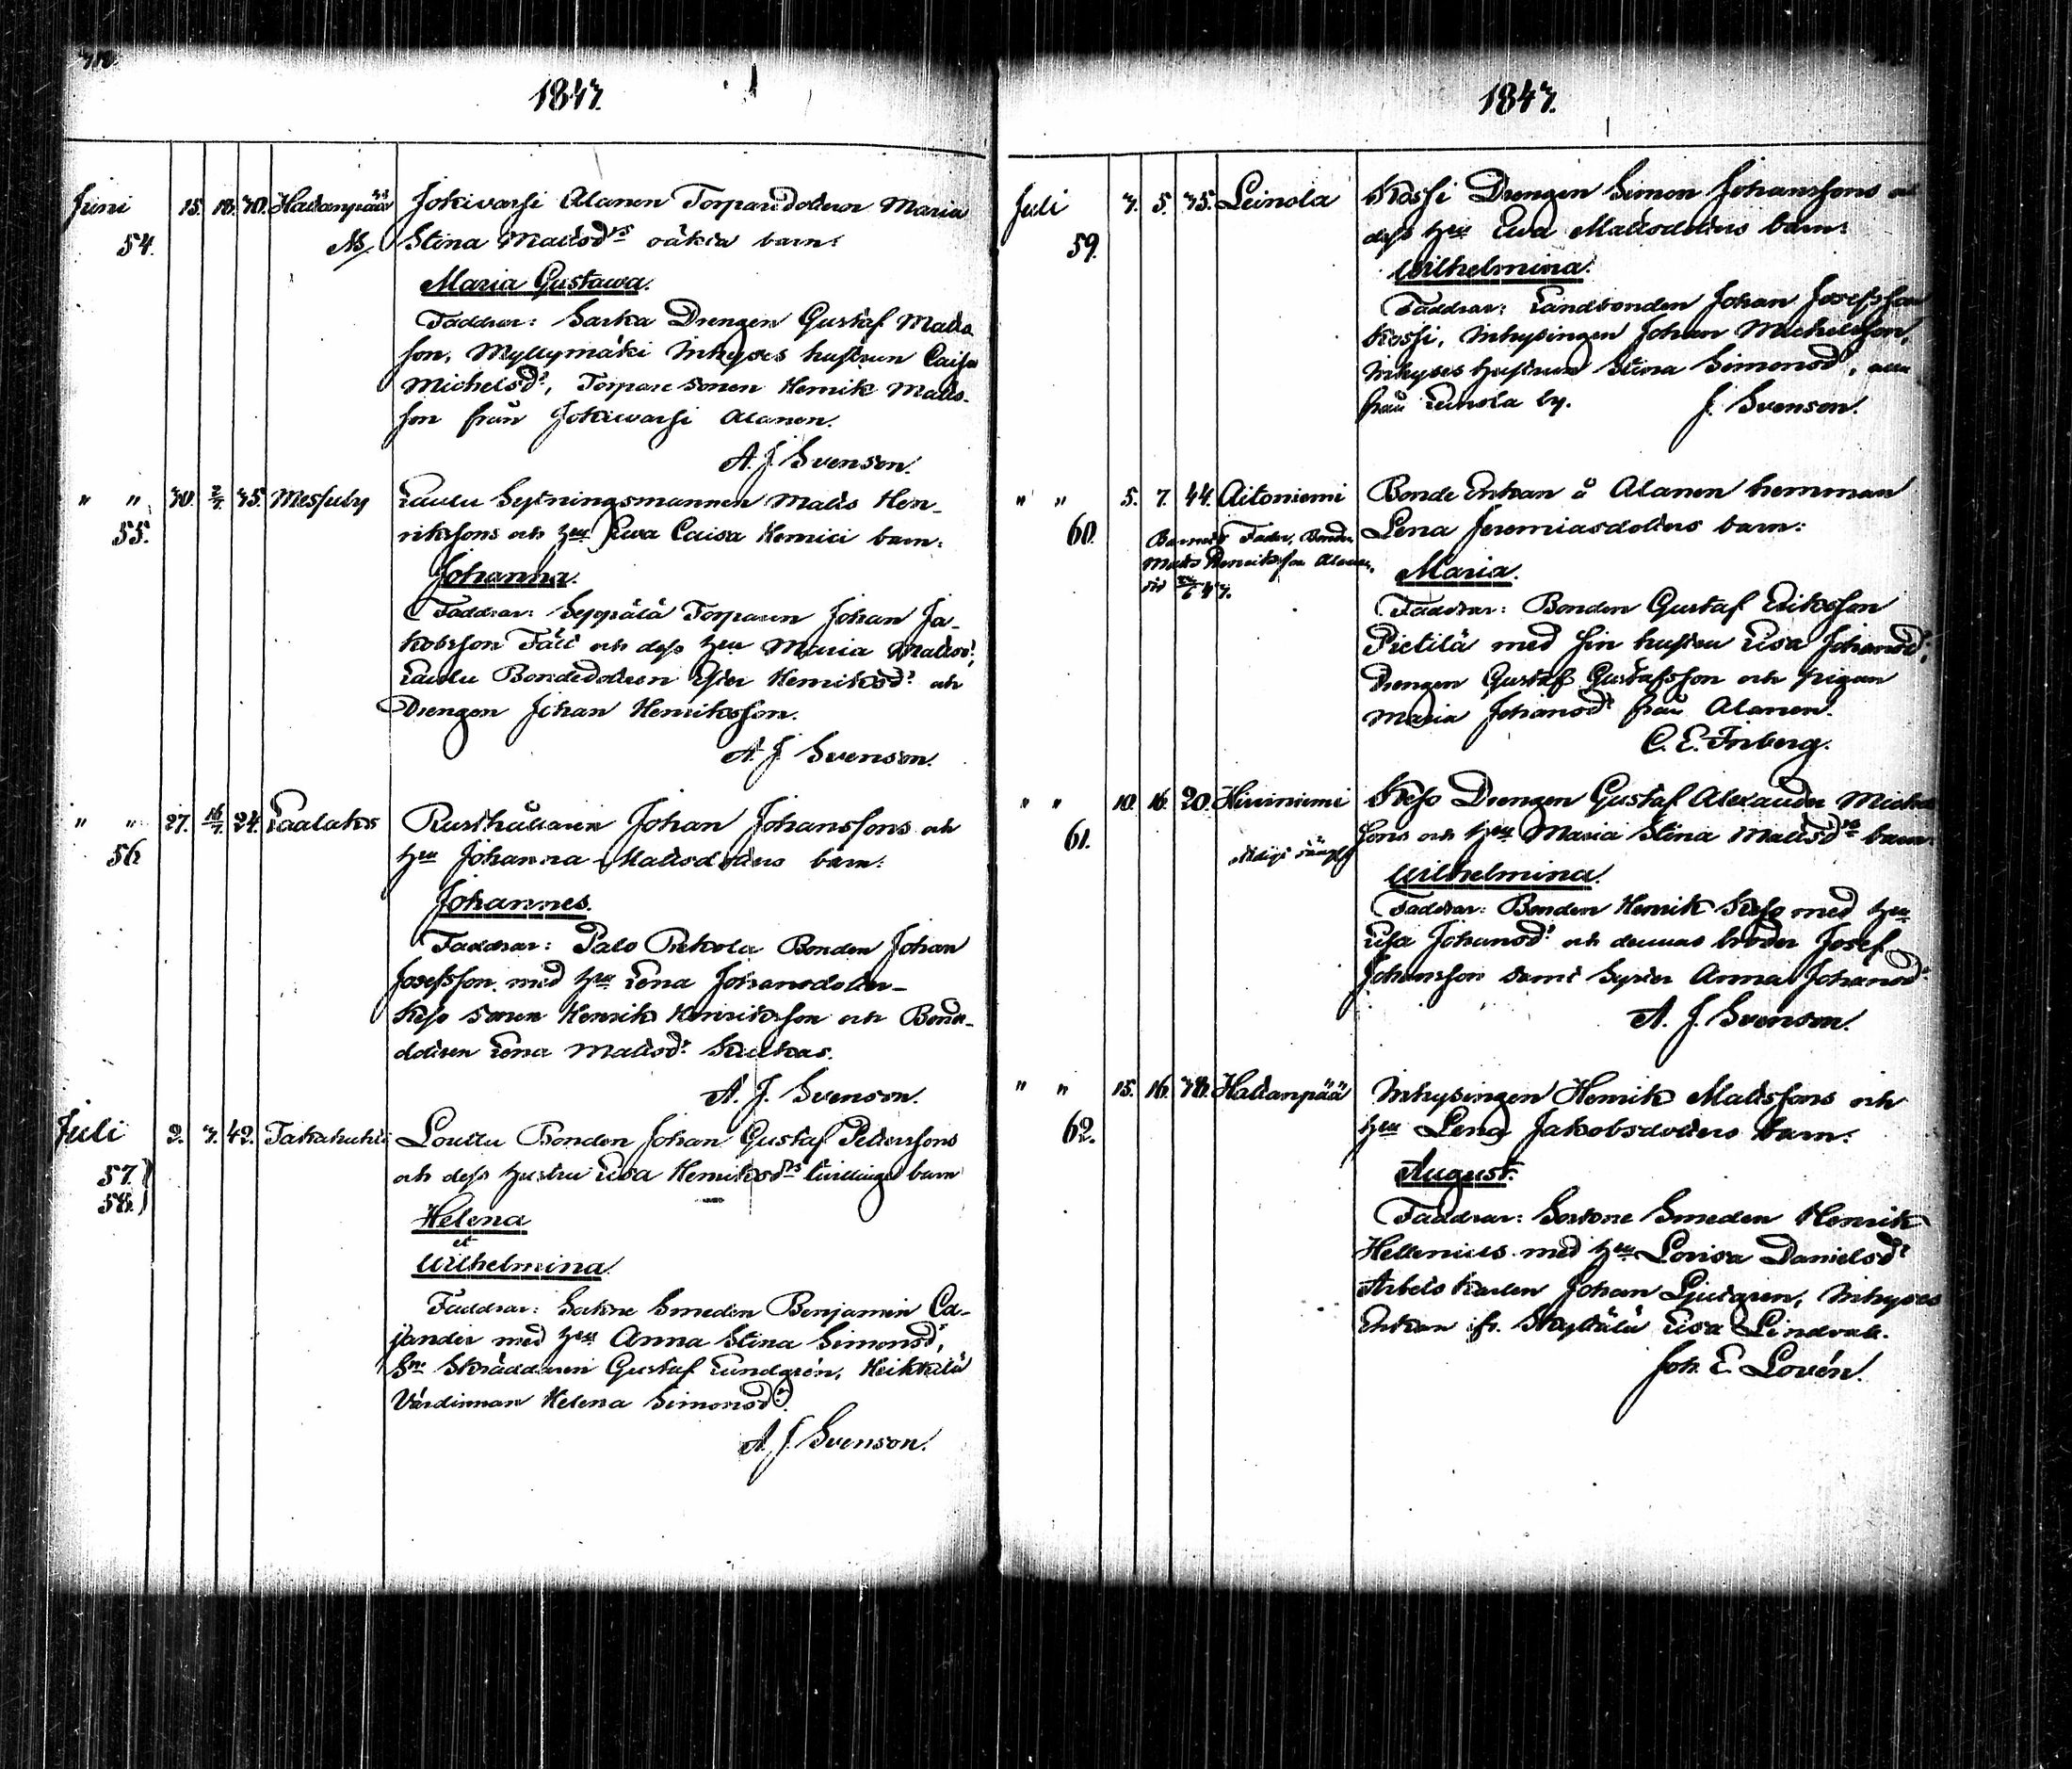 1847.
Juni 15. 18. 30. Hattanpää Jokivarsi Alanen Torparedottren Maria
54. Stina Matsd:rs oäkta barn:
Maria Gustawa.
Faddrar: Sarka Drengen Gustaf Mats-
son, Myllymäki Inhyses hustrun Caisa
Michelsd:r, Torpare sonen Henrik Mats-
son från Jokiwarsi Alanen.
A. J. Svenson.
" " 30. 2/7. 35. Messuby Laulu Sexningsmannen Matts Hen-
55. rikssons och h:u Ewa Caisa Henrici barn:
Johanna.
Faddrar: Seppälä Torparen Johan Ja-
kobsson Fält och dess h:u Maria Matsd:r,
Laulu Bondedottren Ester Henriksd:r och
Drengen Johan Henriksson.
A. J. Svenson.
" " 27. 16/7. 24. Laalaks Rusthållaren Johan Johanssons och
56. h:u Johanna Matsdotters barn:
Johannes.
Faddrar: Palo Bonden Johan
Josefsson med h:u Lena Johansdotter-
Keso sonen Henrik Henriksson och Bonde-
dottren Lena Matsd:r Kulkas.
A. J. Svenson.
Juli 2. 3. 42. Takahuhti Louttu Bonden Johan Gustaf Peterssons
57. och dess hustru Lisa Henriksd:rs tvillinge barn
58.
Helena
et
Wilhelmina
Faddrar: Sockne Smeden Benjamin Ca-
jander med h:u Anna Stina Simonsd:r,
S:ne Skräddaren Gustaf Lundgrén, Heikkilä
Värdinnan Helena Simonsd:r
A. J. Svenson.
1847.
Juli 3. 5. 35. Leinola Kossi Drengen Simon Johanssons och
59. dess h:u Ewa Matsdotters barn:
Wilhelmina.
Faddrar: Landbonden Johan Josefsson
Kossi, Inhysingen Johan Michelsson,
Inhyses hustrun Stina Simonsd:r, alla
från Leinola by. J. Svenson.
" " 5. 7. 44. Aitoniemi Bonde Enkan å Alanen hemman
60. Lena Jeremiasdotters barn:
Barnets Fader, Bonden
Matts Henriksson Alanen,
Maria.
Faddrar: Bonden Gustaf Eriksson
Pietilä med sin hustru Lisa Johansd:r,
Drengen Gustaf Gustafsson och pigan
Maria Johansd:r från Alanen.
C. E. Friberg.
" " 10. 16. 20. Hirviniemi Keso Drengen Gustaf Alexander Michels-
61. sons och h:u Maria Stina Matsd:rs barn:
Wilhelmina.
Faddrar: Bonden Henrik Keso med h:u
Lisa Johansd:r och dennas broder Josef
Johansson samt Syster Anna Johansd:r
A. J. Svenson.
" " 15. 16. 38. Hattanpää Inhysingen Henrik Matssons och
62. h:u Lena Jakobsdotters barn:
August.
Faddrar: Sockne Smeden Henrik
Hellenius med h:u Lovisa Danielsd:r
Arbets Karlen Johan Ljudgren, Inhyses
Enkan fr. Lisa Lindvall.
Joh. E. Lovén.